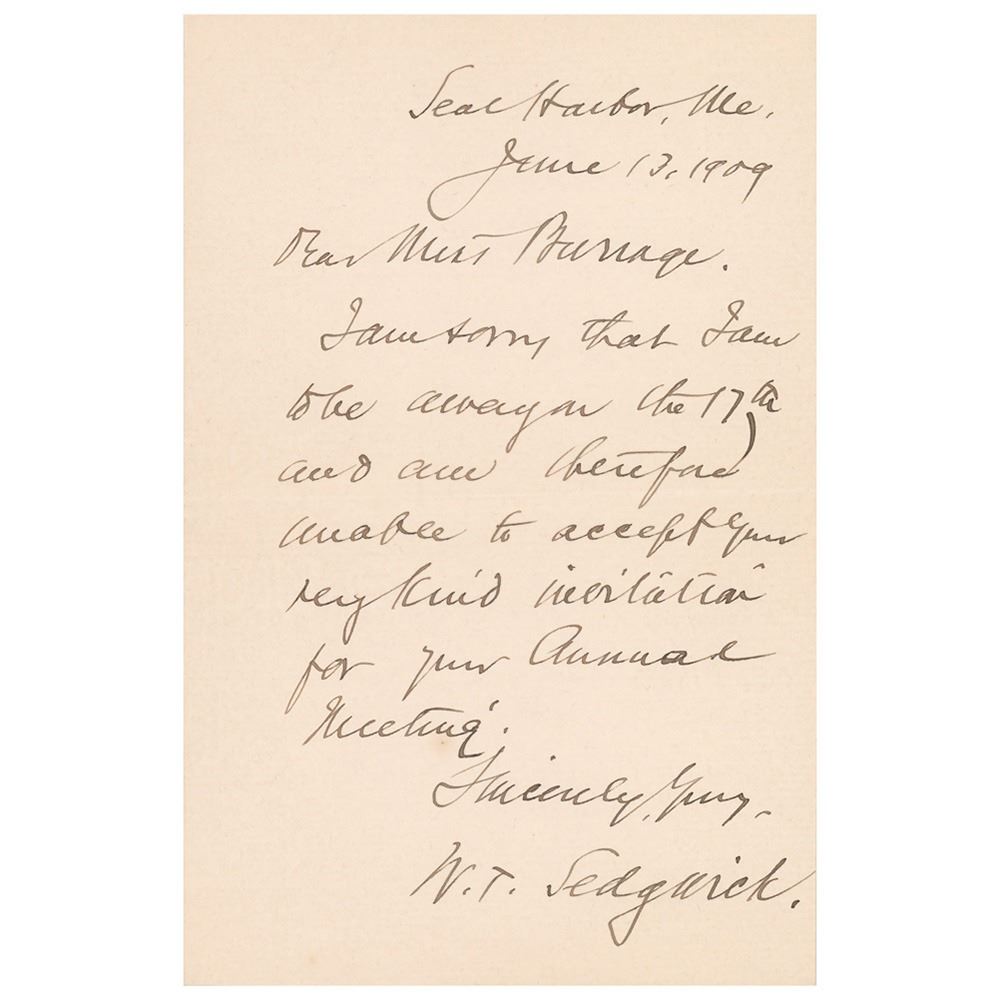 Seal Harbor, Me.
June 13, 1909
Dear Miss Burrage.
I am sorry that I am
to be away on the 17th,
and am therefore
unable to accept your
very kind invitation
for your Annual
Meeting.
Sincerely Yours,
W. T. Sedgwick.